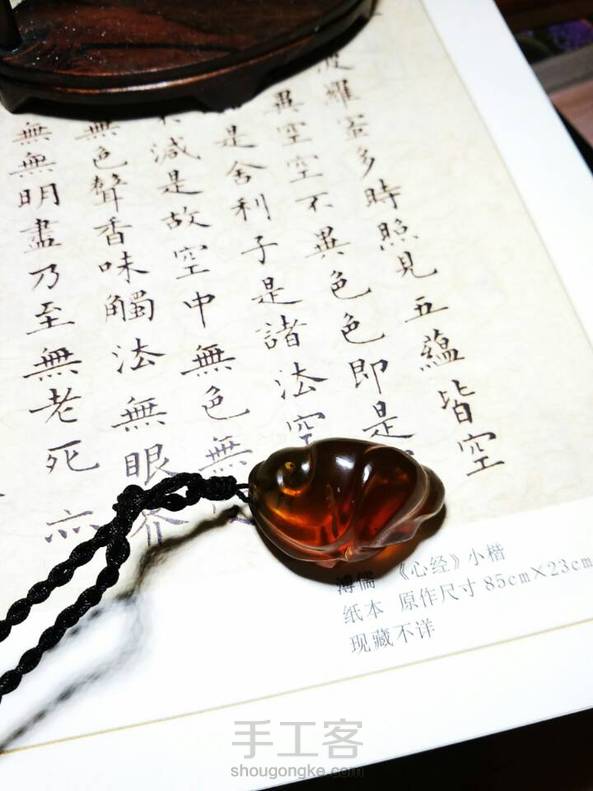 波羅蜜多時照見五蘊皆空
異空空不異色色即是
是舍利子是諸法空
減是故空中無色無
無色聲香味觸法無眼界
無無明盡乃至無老死亦
溥儒 《心经》小楷
纸本 原作尺寸85cm×23cm
现藏不详
手工客
shougongke.com